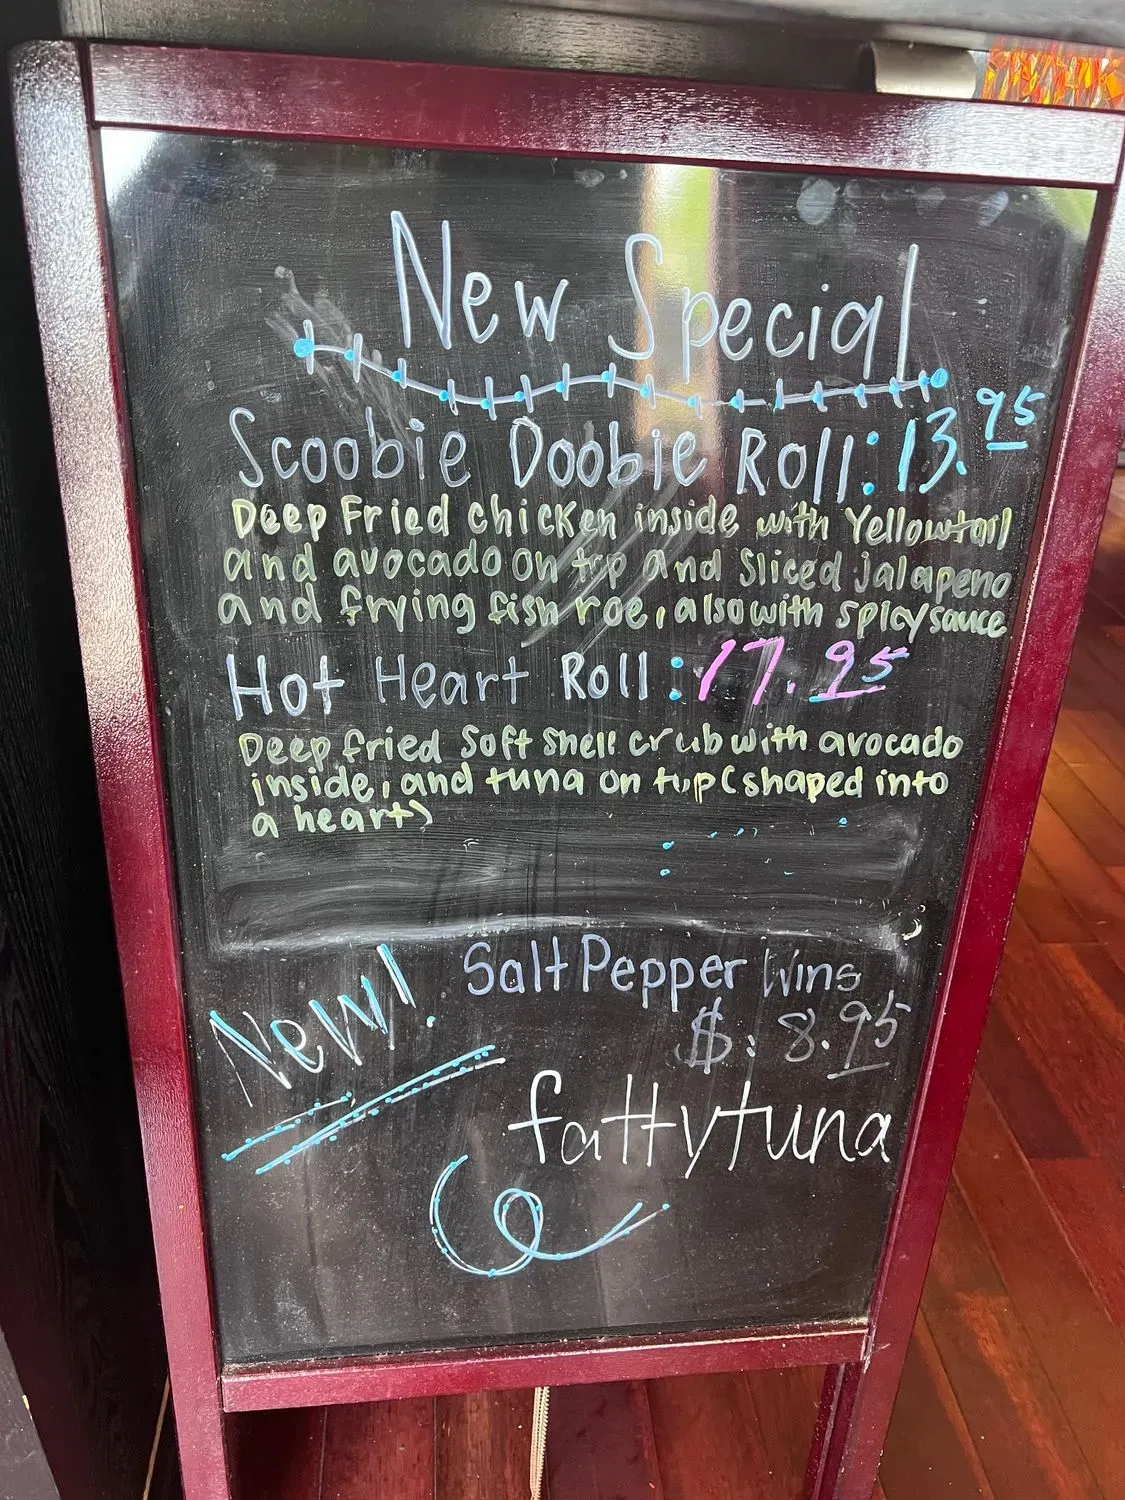 New Special
Scoobie Doobie Roll: 13.95
Deep Fried chicken inside, with Yellowtail
and avocado on top and Sliced jalapeno
and frying fish roe, also with spicy sauce
Hot Heart Roll: 17.95
Deep fried Soft Shell crub with avocado
inside, and tuna on top (shaped into
a heart)
New!
Salt Pepper Wins
$: 8.95
fatty tuna